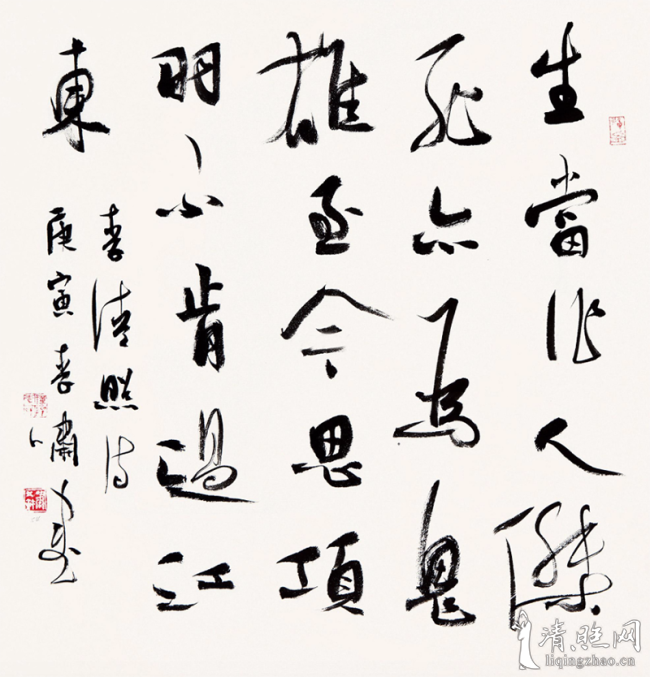 生當作人傑
死亦為鬼
雄至今思項
羽不肯過江
東
李清照詩
庚寅春嘯
清照网
liqingzhao.cn